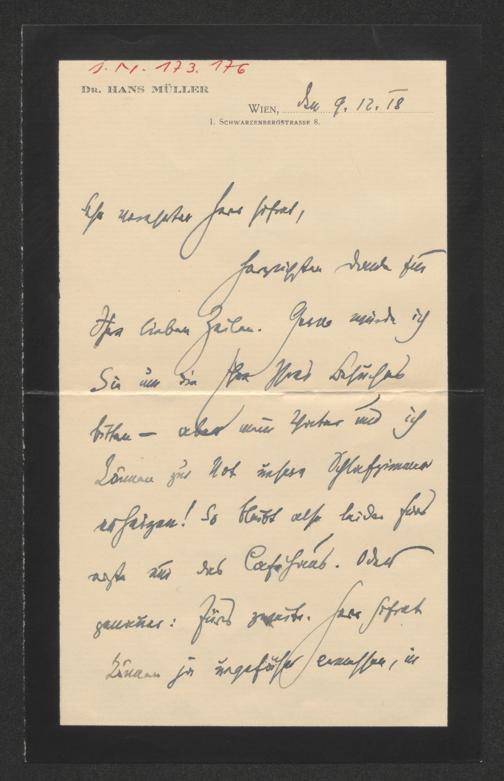 I. N. 173.176
DR. HANS MÜLLER
WIEN, den 9. 12. 18
I. SCHWARZENBERGSTRASSE 8.
Sehr verehrter Herr Hofrat,
herzlichsten Dank für
Ihre lieben Zeilen. Gerne würde ich
Sie um die Ehre Ihres Besuches
bitten — aber mein Vater und ich
können zur Not unsere Schlafzimmer
erheizen! So bleibt also leider fürs
erste nur das Caféhaus. Oder
genauer: fürs zweite. Herr Hofrat
können ja ungefähr ermessen, in